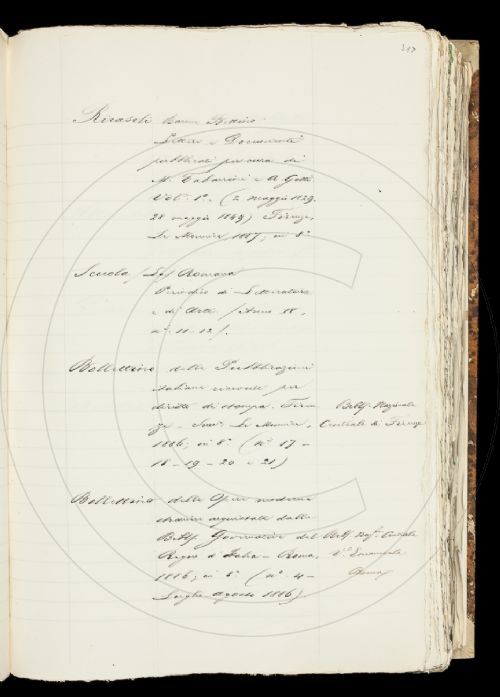 Ricasoli Baron Bettino
Lettere e Documenti
pubblicati per cura di
M. Tabarrini e A. Gotti
Vol. 1º. (2 maggio 1829
28 maggio 1849) Firenze,
Le Monnier, 1887, in 8º
Scuola (La) Romana
Periodico di Letteratura
e di Arte. (Anno
nº. 11-12).
Bollettino delle Pubblicazioni
italiane ricevute per
diritto di stampa. Firen
ze - Succ. Le Monnier,
1886; in 8º. (nº 17-
18-19-20 e 21)
Bibl. Nazionale
Centrale di Firenze
Bollettino delle Opere moderne
straniere acquistate dalle
Bibl. Governative del
Regno d'Italia - Roma,
1886; in 8º (nº. 4-
Luglio Agosto 1886).
Bibl. Naz. Centrale
Vº. Emanuele
Roma